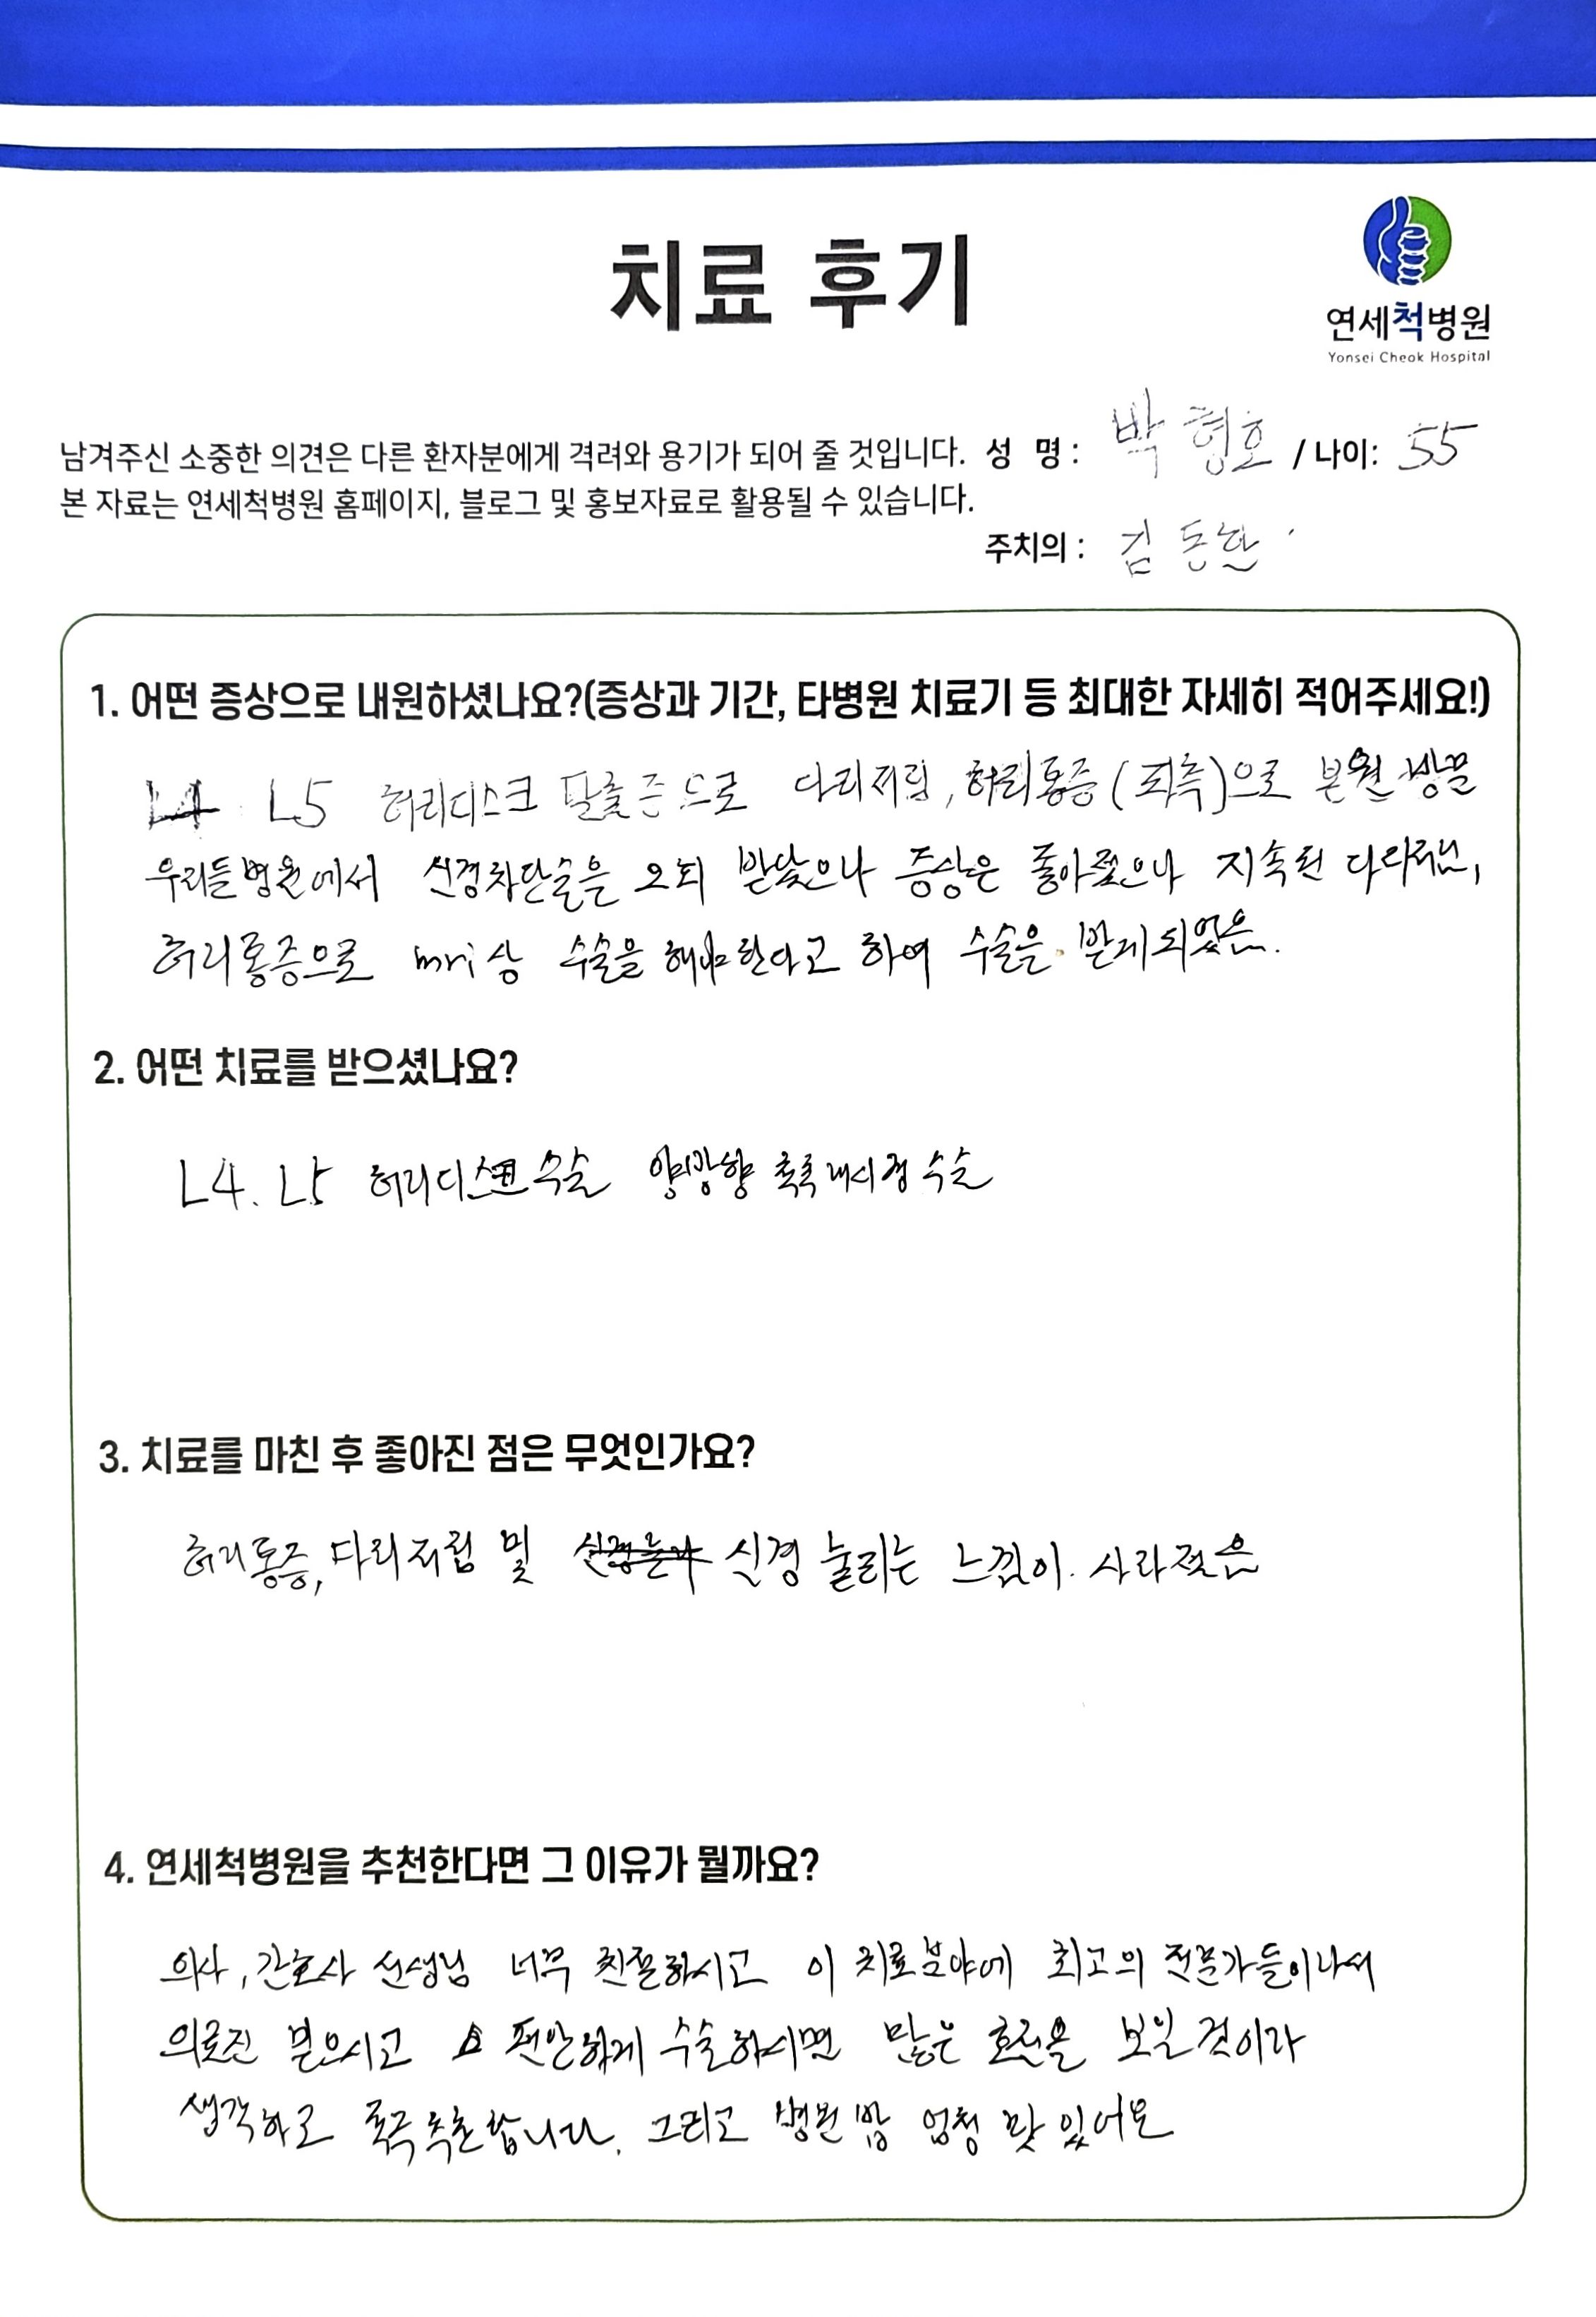 치료 후기
연세척병원
Yonsei Cheok Hospital
남겨주신 소중한 의견은 다른 환자분에게 격려와 용기가 되어 줄 것입니다. 성 명 : 박형호 / 나이: 55
본 자료는 연세척병원 홈페이지, 블로그 및 홍보자료로 활용될 수 있습니다.
주치의 : 김동한
1. 어떤 증상으로 내원하셨나요?(증상과 기간, 타병원 치료기 등 최대한 자세히 적어주세요!)
L4 L5 허리디스크 탈출증으로 다리저림, 허리통증(좌측)으로 본원 방문
우리들병원에서 신경차단술을 오회 받았으나 증상은 좋아졌으나 지속된 다리저림,
허리통증으로 mri상 수술을 해야한다고 하여 수술을 받게되었음.
2. 어떤 치료를 받으셨나요?
L4. L5 허리디스크 수술 양방향 척추내시경 수술
3. 치료를 마친 후 좋아진 점은 무엇인가요?
허리통증, 다리저림 및 신경 눌리는 느낌이 사라졌음
4. 연세척병원을 추천한다면 그 이유가 뭘까요?
의사, 간호사 선생님 너무 친절하시고 이 치료분야에 최고의 전문가들이나서
의료진 믿으시고 편안하게 수술하시면 많은 효과을 보일 것이라
생각하고 적극 추천합니다. 그리고 병원 밥 엄청 맛있어요